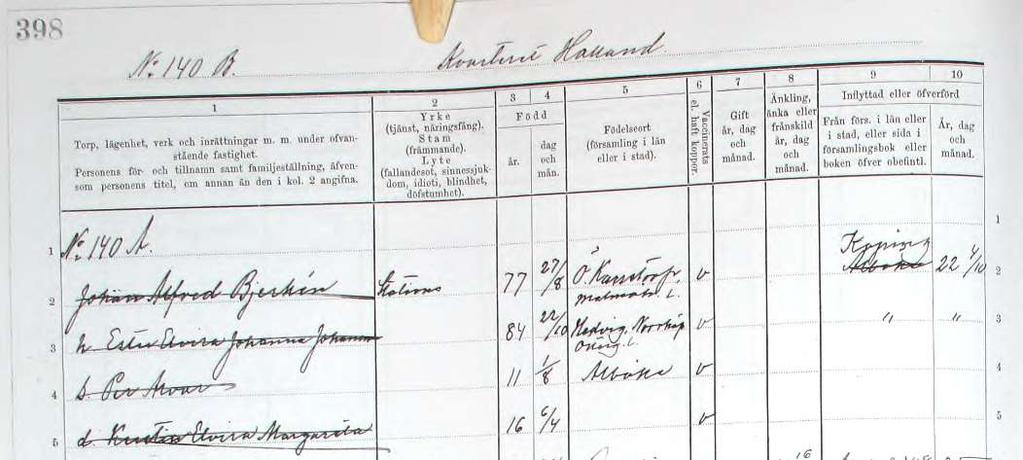 398
No 140 B.
Kvarteret Halland.
1
Torp, lägenhet, verk och inrättningar m. m. under ofvanstående fastighet.
Personens för- och tillnamn samt familjeställning, äfvensom personens titel, om annan än den i kol. 2 angifna.
2
Yrke
(tjänst, näringsfång).
Stam
(främmande).
Lyte
(fallandesot, sinnessjukdom, idioti, blindhet, dofstumhet).
3
4
Född
år.
dag och mån.
5
Födelseort
(församling i län eller i stad).
6
Vaccinerats el. haft koppor.
7
Gift
år, dag och månad.
8
Änkling, änka eller frånskild
år, dag och månad.
9
10
Inflyttad eller öfverförd
Från förs. i län eller i stad, eller sida i församlingsbok eller boken öfver obefintl.
År, dag och månad.
1 No 140 A. 1
2 Johan Alfred Bjerkén Stations 77 27/8 Ö. v Köping 22 4/10 2
Malmöh. L.
3 h. Ester Elvira Johanna 84 22/10 Hedvig, Norrköp v " " 3
Östg. L.
4 s. Per Alvar 11 1/8 Alböke v 4
5 d. Kerstin Elvira Margareta 16 6/4 v 5
16